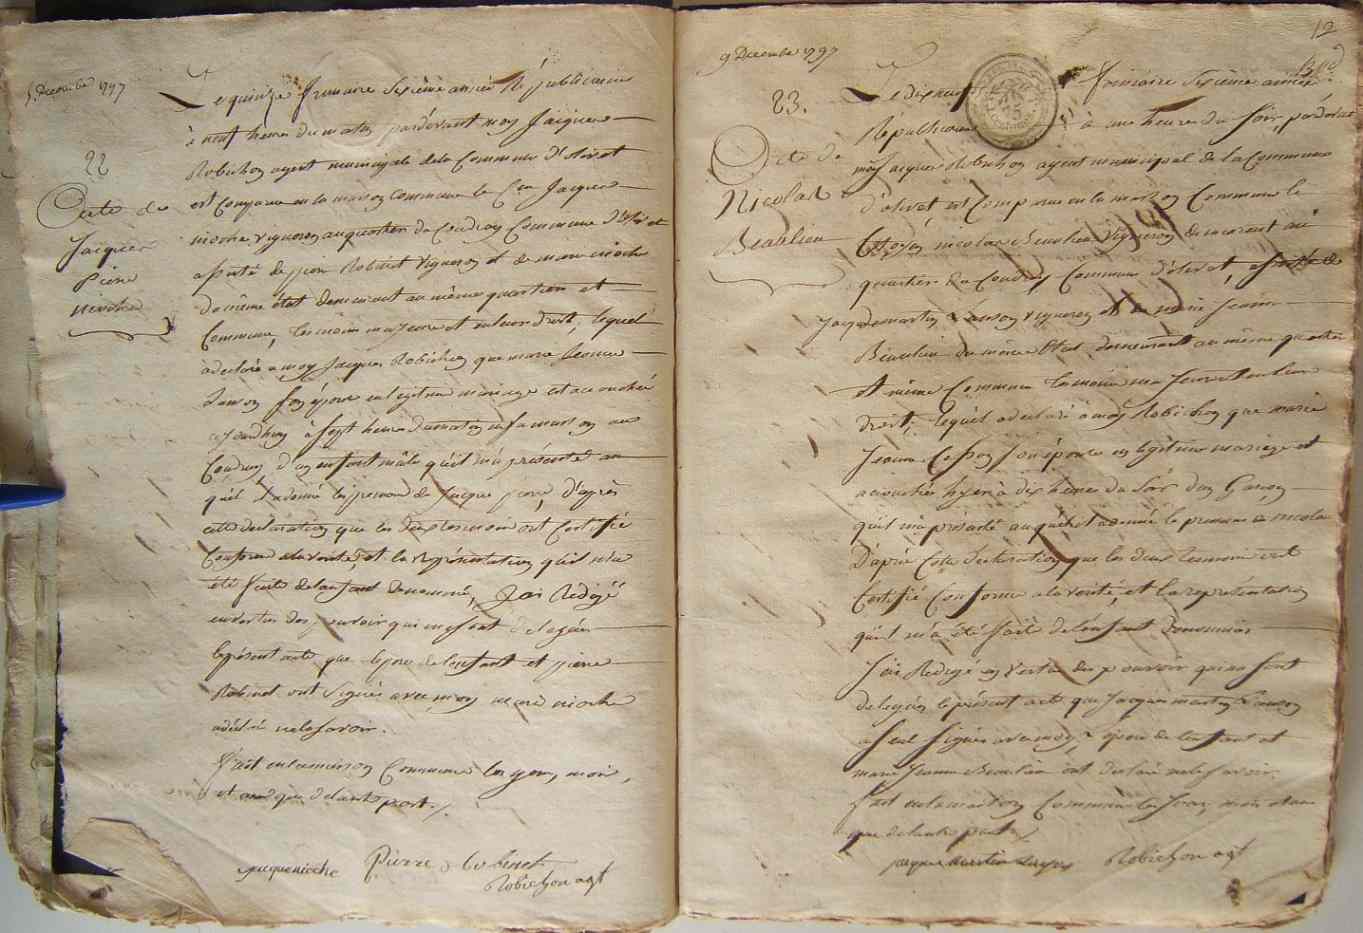 5. Decembre 1797
22
Acte de
Jacques
Pierre
nioche
Le quinze frimaire Sixième année Républicaine
à neuf heures du matin pardevant moy Jacques
Robichon agent municipal de la Commune d'olivet
est Comparu en la maison commune le Cen Jacques
nioche vigneron au quartier du Coudray Commune d'olivet
assisté de pierre Robinet vigneron et de marie nioche
du même état demeurant au même quartier et
Commune, témoins majeurs et en leurs droits, lequel
a declaré a moy Jacques Robichon que marie Jeanne
Son épouse en legitime mariage est acouchée
aujourdhuy à Sept heures du matin en sa maison au
Coudray d'un enfant mâle qu'il m'a présenté au
quel il a donné les prenoms de Jacque pierre, d'après
cette declaration que les deux temoins ont Certifié
Conforme a la verité, et la représentation qu'il m'a
été faite de l'enfant denommé, J'ai Redigé
en vertu des pouvoir qui me sont delegués
le présent acte que le pere de l'enfant et pierre
Robinet ont Signés avec moy marie nioche
a déclaré ne le Savoir.
fait en la maison Commune les jours, mois,
et an que d'elautre part.
jacque nioche Pierre Robinet
Robichon agt
12
9 Decembre 1797
23.
Acte de
Nicolas
Beaulieu
Le dix neuf frimaire Sixième année
Républicaine à une heure du Soir, pardevant
moy Jacques Robichon agent municipal de la Commune
d'olivet, est Comparu en la maison Commune le
Citoyen nicolas Beaulieu vigneron demeurant au
quartier du Coudray Commune d'olivet, assisté de
Jacques martin vigneron et de marie Jeanne
Beaulieu du même Etat, demeurant au même quartier
et même Commune temoins majeurs et en leurs
droits, lequel a declaré à moy Robichon que marie
Jeanne Son épouse en legitime mariage est
acouchée hyer à dix heures du Soir d'un Garçon
qu'il m'a présenté auquel il a donné le prenom de nicolas
D'après Cette declaration, que les deux temoins ont
Certifié Conforme a la verité, et la représentation
qu'il m'a été faite de l'enfant Denommé
J'ai Redigé en vertu des pouvoir qui me sont
delegués le présent acte que Jacques martin
a Seul Signé avec moy, le pere de l'enfant et
marie Jeanne Beaulieu ont declaré ne le Savoir.
fait en la maison Commune les Jour, mois et an
que d'elautre part
jacque martin Robichon agt